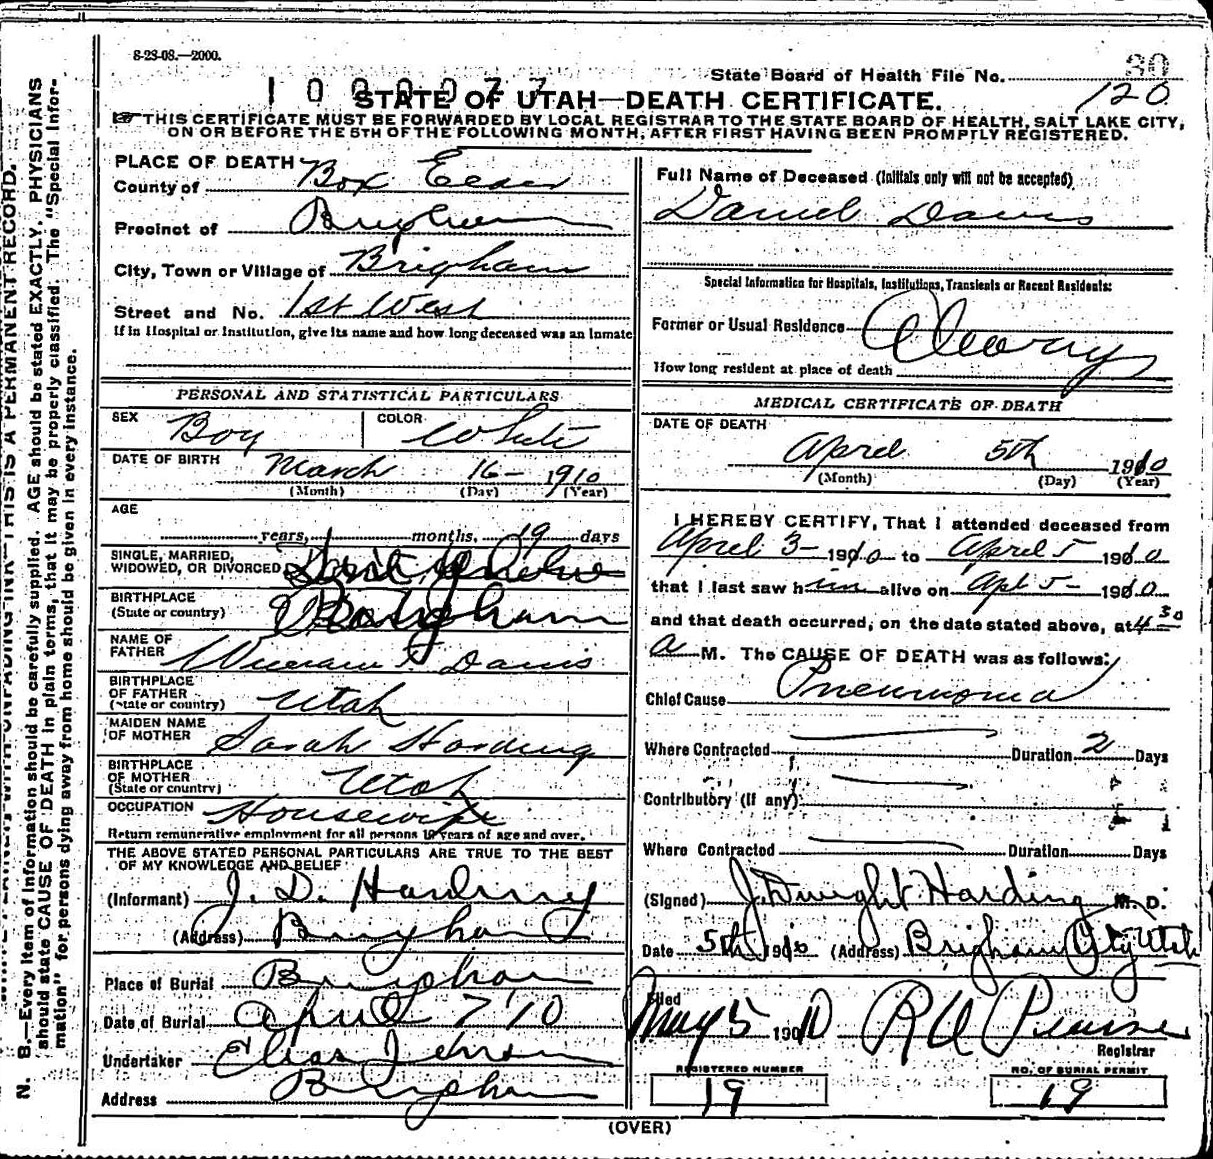 8-23-08.—2000.
1000077
State Board of Health File No. 30
120
STATE OF UTAH—DEATH CERTIFICATE.
THIS CERTIFICATE MUST BE FORWARDED BY LOCAL REGISTRAR TO THE STATE BOARD OF HEALTH, SALT LAKE CITY,
ON OR BEFORE THE 5TH OF THE FOLLOWING MONTH, AFTER FIRST HAVING BEEN PROMPTLY REGISTERED.
N. B.—Every item of information should be carefully supplied. AGE should be stated EXACTLY. PHYSICIANS
should state CAUSE OF DEATH in plain terms, that it may be properly classified. The "Special Infor-
mation" for persons dying away from home should be given in every instance.
THIS IS A PERMANENT RECORD.
PLACE OF DEATH
County of Box Elder
Precinct of Brigham
City, Town or Village of Brigham
Street and No. 1st West
If in Hospital or Institution, give its name and how long deceased was an Inmate
PERSONAL AND STATISTICAL PARTICULARS
SEX Boy COLOR White
DATE OF BIRTH March 16- 1910
(Month) (Day) (Year)
AGE
years, months, 19 days
SINGLE, MARRIED,
WIDOWED, OR DIVORCED
BIRTHPLACE
(State or country) Brigham
NAME OF
FATHER William Davis
BIRTHPLACE
OF FATHER
(State or country) Utah
MAIDEN NAME
OF MOTHER Sarah Harding
BIRTHPLACE
OF MOTHER
(State or country) Utah
OCCUPATION Housewife
Return remunerative employment for all persons 10 years of age and over.
THE ABOVE STATED PERSONAL PARTICULARS ARE TRUE TO THE BEST
OF MY KNOWLEDGE AND BELIEF
(Informant) J. D. Harding
(Address) Brigham
Place of Burial Brigham
Date of Burial April 7 '10
Undertaker Elias Jensen
Address Brigham
Full Name of Deceased (Initials only will not be accepted)
Daniel Davis
Special Information for Hospitals, Institutions, Transients or Recent Residents:
Former or Usual Residence
How long resident at place of death
MEDICAL CERTIFICATE OF DEATH
DATE OF DEATH
April 5th 1910
(Month) (Day) (Year)
I HEREBY CERTIFY, That I attended deceased from
April 3- 1910 to April 5 1910
that I last saw him alive on Apl 5- 1910
and that death occurred, on the date stated above, at 4 30
a M. The CAUSE OF DEATH was as follows:
Chief Cause Pneumonia
Where Contracted Duration 2 Days
Contributory (if any)
Where Contracted Duration Days
(Signed) J. Dwight Harding M. D.
Date 5th 1910 (Address) Brigham City Utah
Filed
May 5 1910
Registrar
REGISTERED NUMBER
19
NO. OF BURIAL PERMIT
19
(OVER)